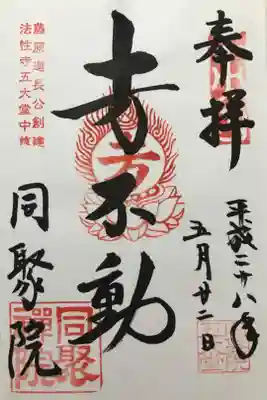 奉拝
平成二十八年
五月廿二日
𡈽不動
同聚院
藤原道長公創建
法性寺五大堂中検
同聚
禅院